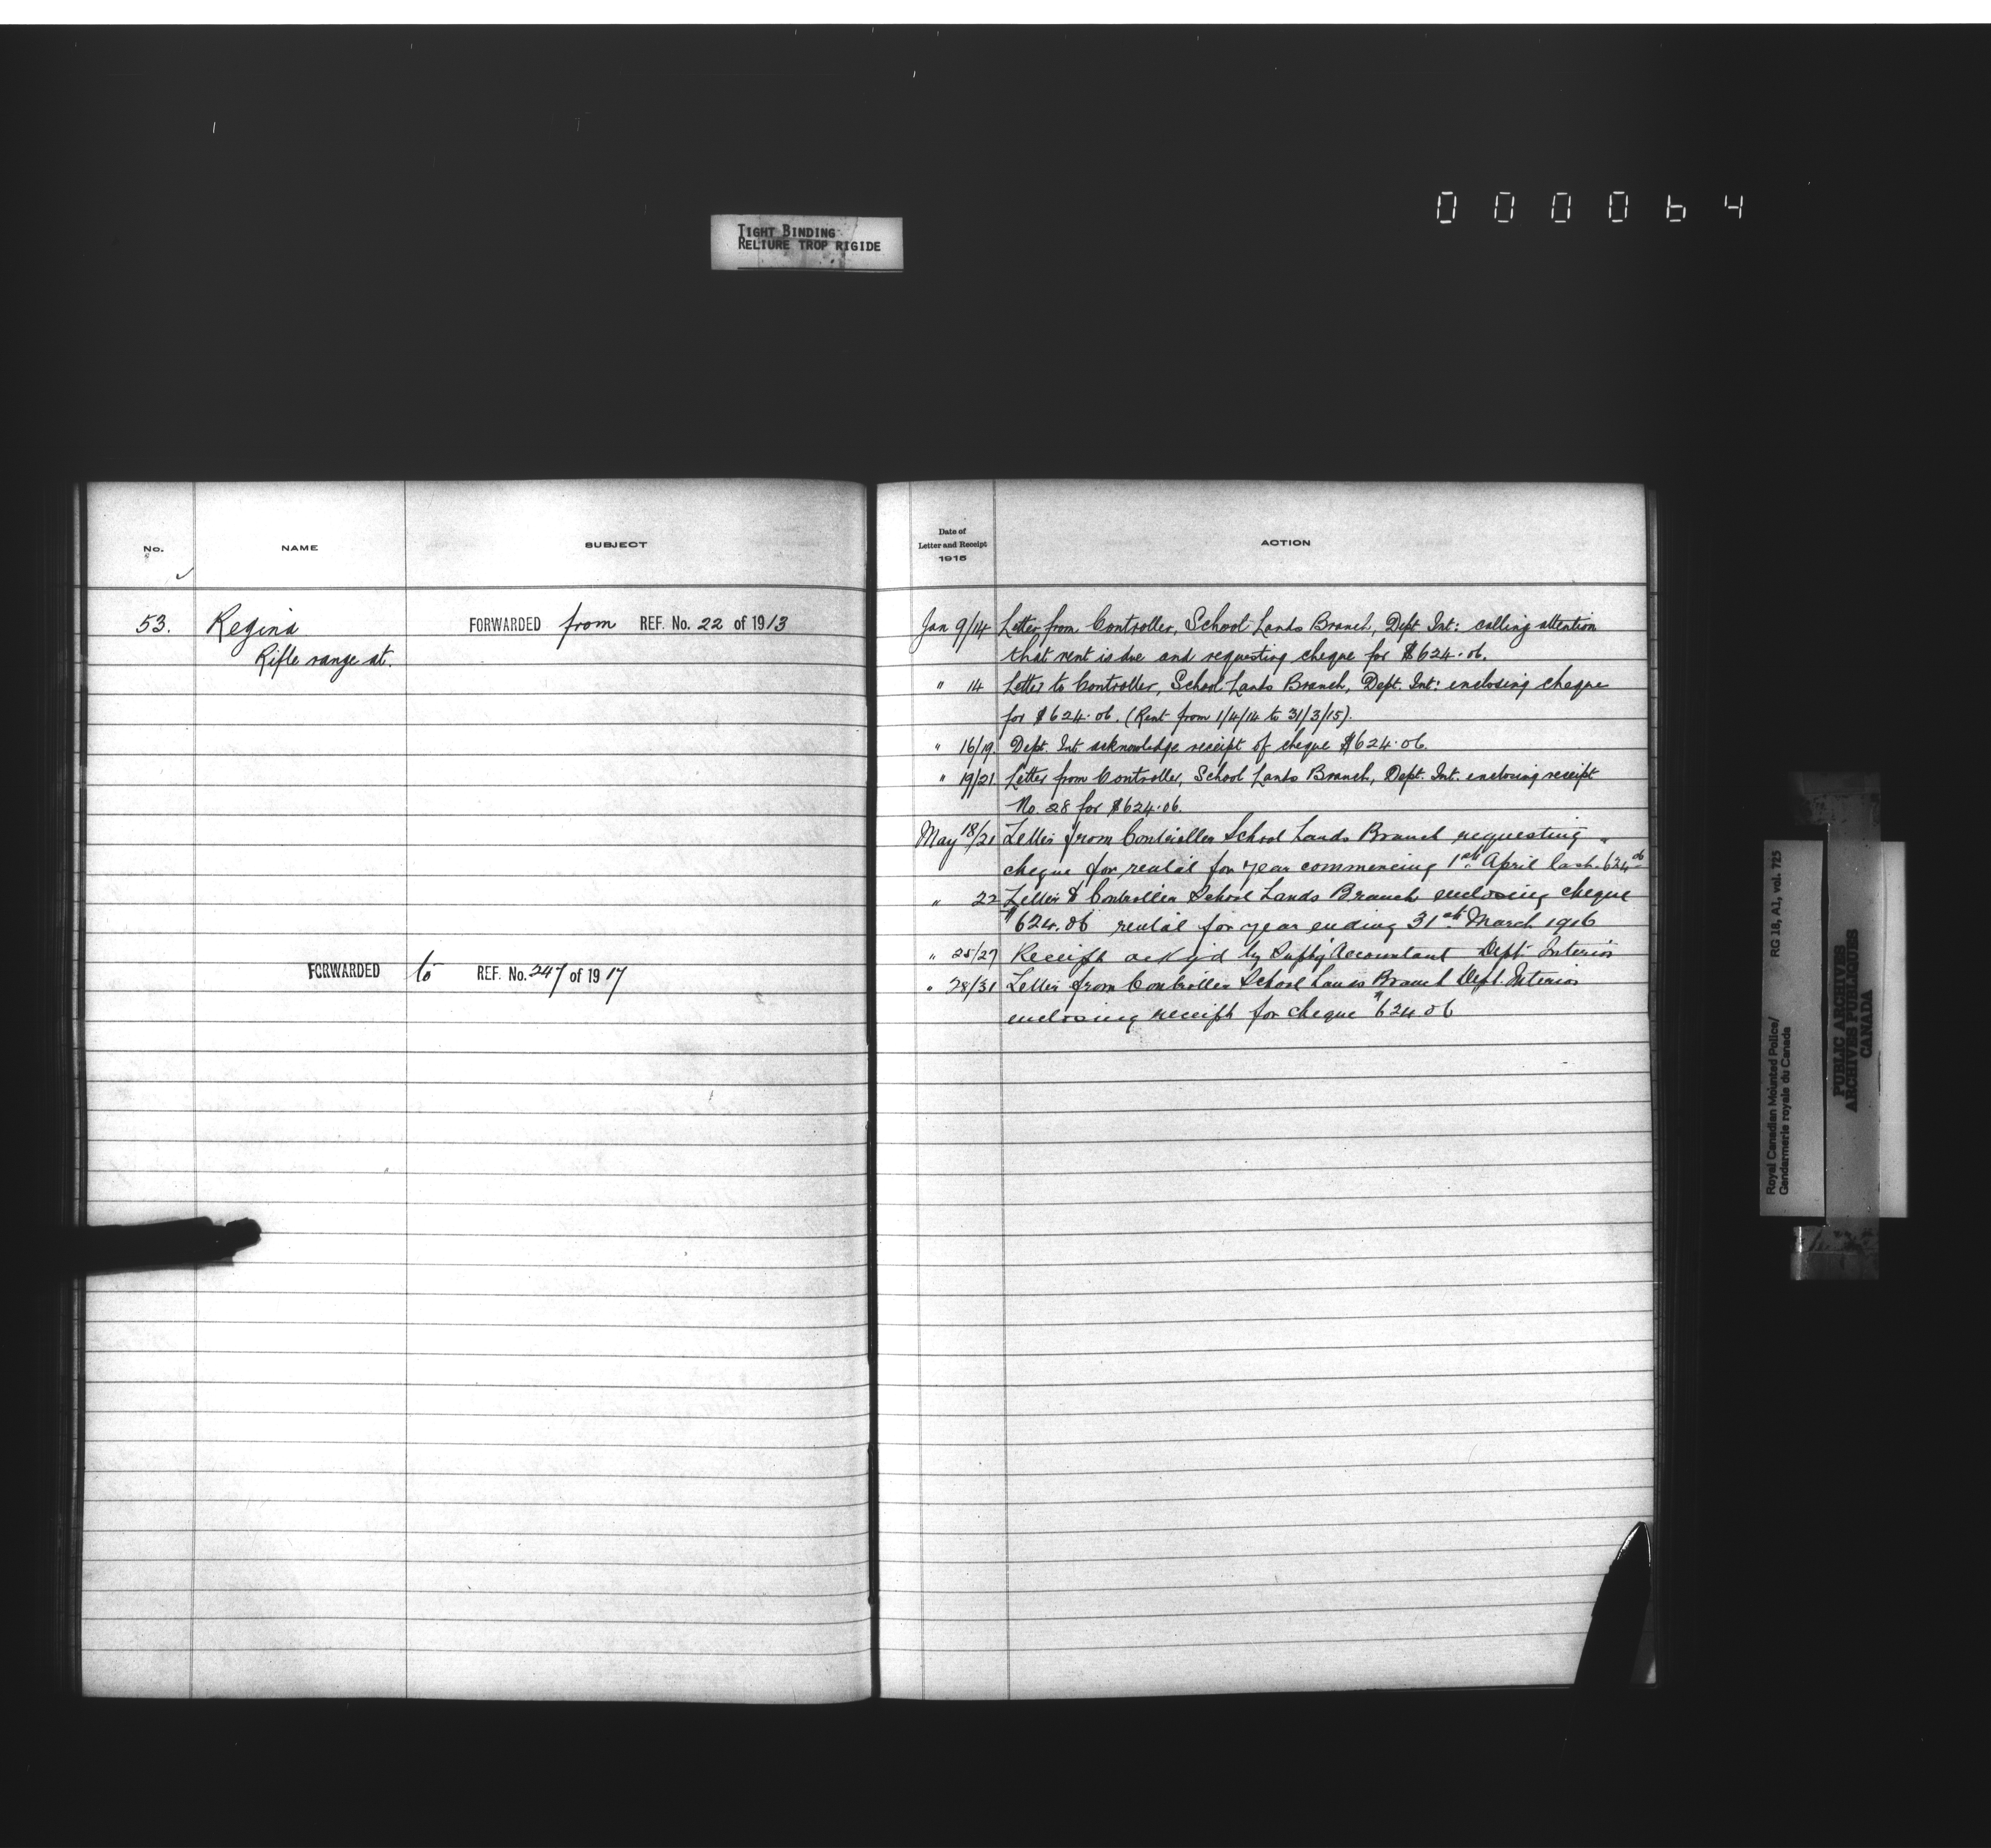 000064
TIGHT BINDING
RELIURE TROP RIGIDE
No.
NAME
SUBJECT
53.
Regina
Rifle range at.
FORWARDED from REF. No. 22 of 1913
FORWARDED to REF. No. 247 of 1917
Date of
Letter and Receipt
1915
ACTION
Jan 9/14 Letter from Controller, School Lands Branch, Dept Int: calling attention
that rent is due and requesting cheque for $624.06.
" 14 Letter to Controller, School Lands Branch, Dept. Int: enclosing cheque
for $624.06. (Rent from 1/4/14 to 31/3/15).
" 16/19. Dept. Int acknowledge receipt of cheque $624.06.
" 19/21 Letter from Controller, School Lands Branch, Dept. Int. enclosing receipt
No. 28 for $624.06.
May 18/21 Letter from Controller School Lands Branch requesting
cheque for rental for year commencing 1st April last 624 06
" 22 Letter to Controller School Lands Branch enclosing cheque
$624.06 rental for year ending 31st March 1916
" 25/27 Receipt ack'g'd by Accountant Dept. Interior
" 28/31 Letter from Controller School Lands Branch Dept. Interior
enclosing receipt for cheque $624 06
Royal Canadian Mounted Police/
Gendarmerie royale du Canada
RG 18, A1, vol. 725
PUBLIC ARCHIVES
ARCHIVES PUBLIQUES
CANADA